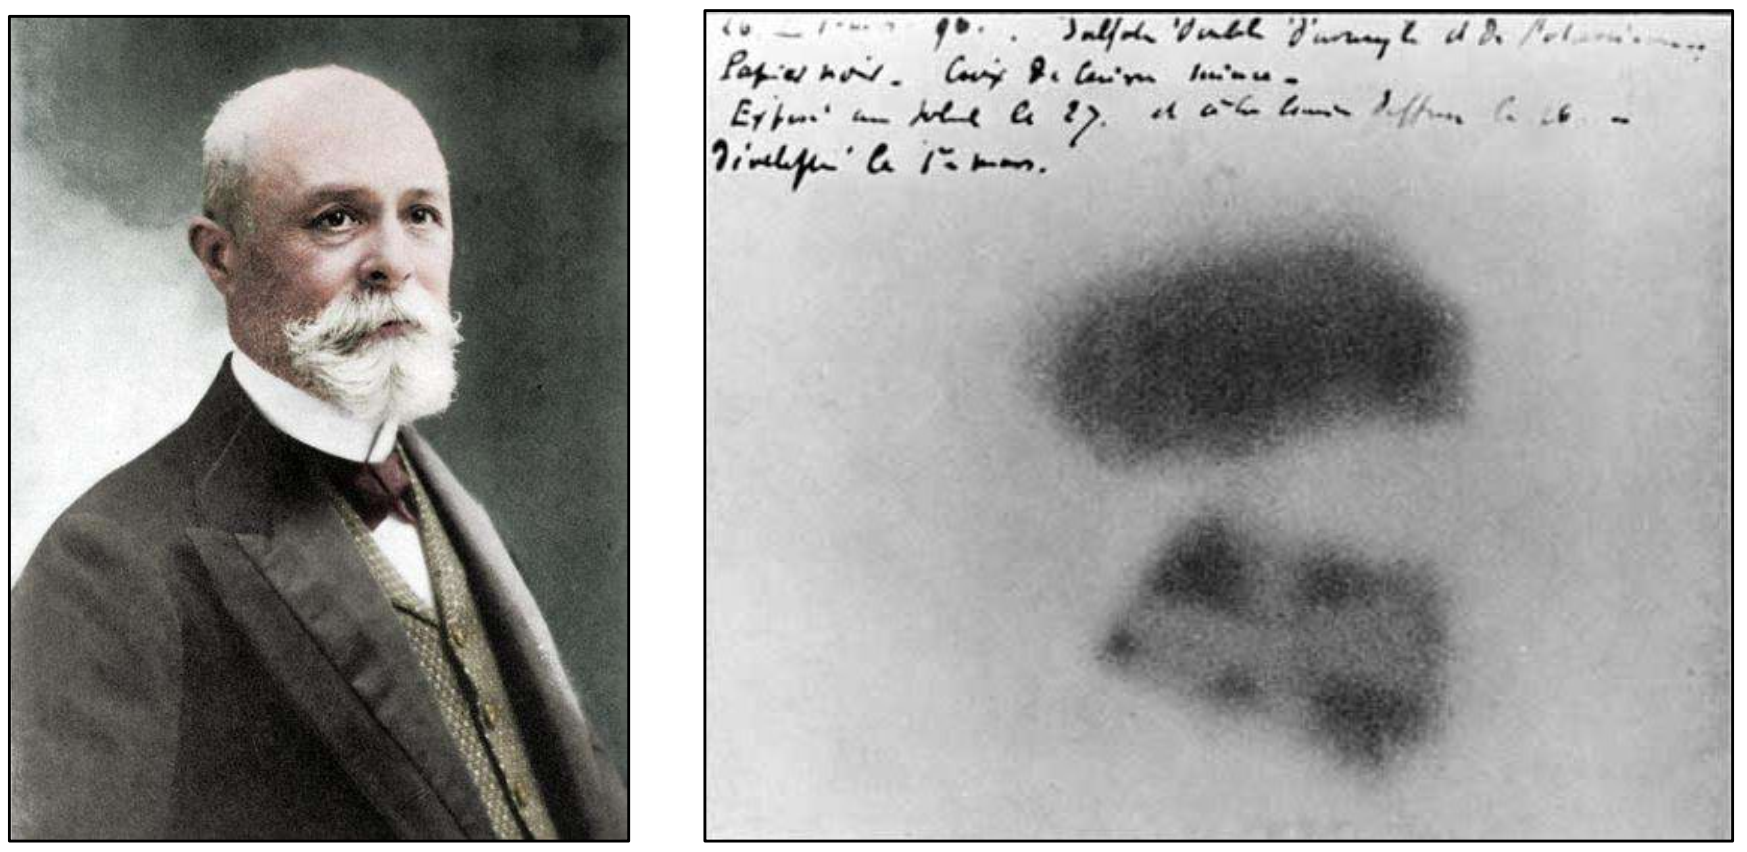 96. Sulfate double d'uranyle et de Potassium
Papier noir. Croix de Cuivre mince -
Exposé au soleil le 27. et à la lumière diffuse le 26 -
Développé le 1er mars.